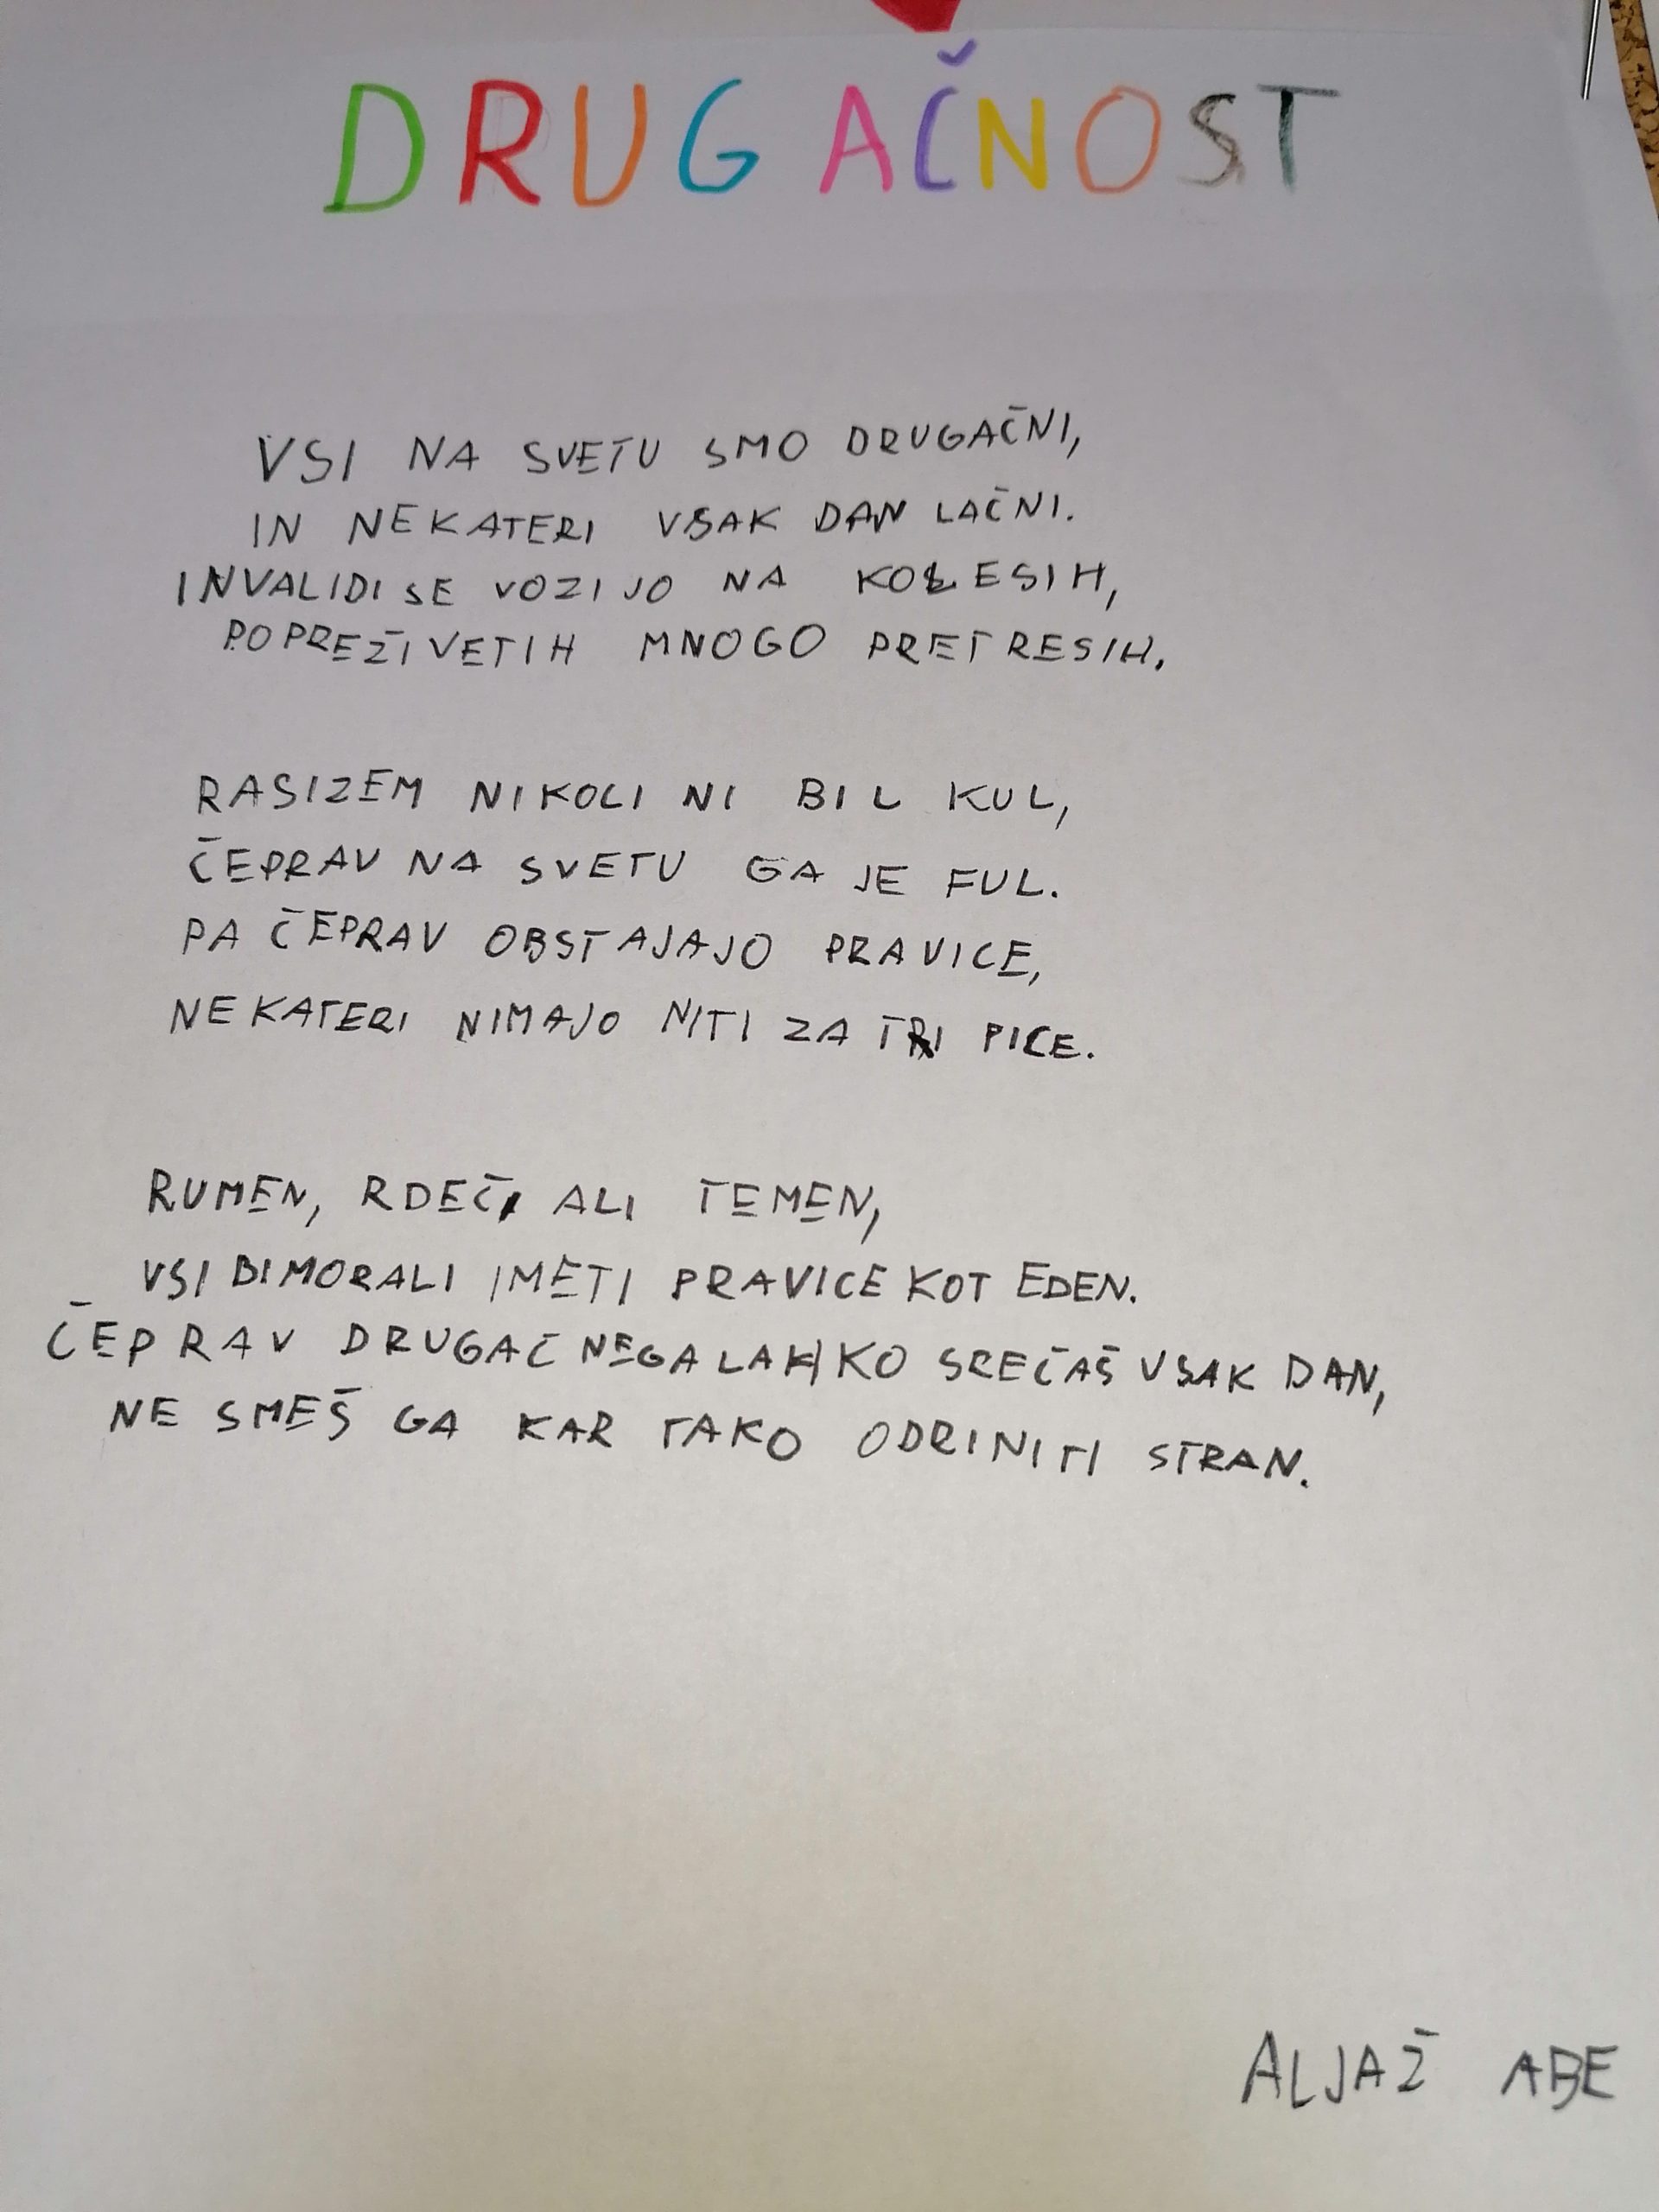 DRUGAČNOST
VSI NA SVETU SMO DRUGAČNI,
IN NEKATERI VSAK DAN LAČNI.
INVALIDI SE VOZIJO NA KOLESIH,
PO PREŽIVETIH MNOGO PRETRESIH.
RASIZEM NIKOLI NI BIL KUL,
ČEPRAV NA SVETU GA JE FUL.
PA ČEPRAV OBSTAJAJO PRAVICE,
NEKATERI NIMAJO NITI ZA TRI PICE.
RUMEN, RDEČ ALI TEMEN,
VSI BI MORALI IMETI PRAVICE KOT EDEN.
ČEPRAV DRUGAČNEGA LAHKO SREČAŠ VSAK DAN,
NE SMEŠ GA KAR TAKO ODRINITI STRAN.
ALJAŽ ABE